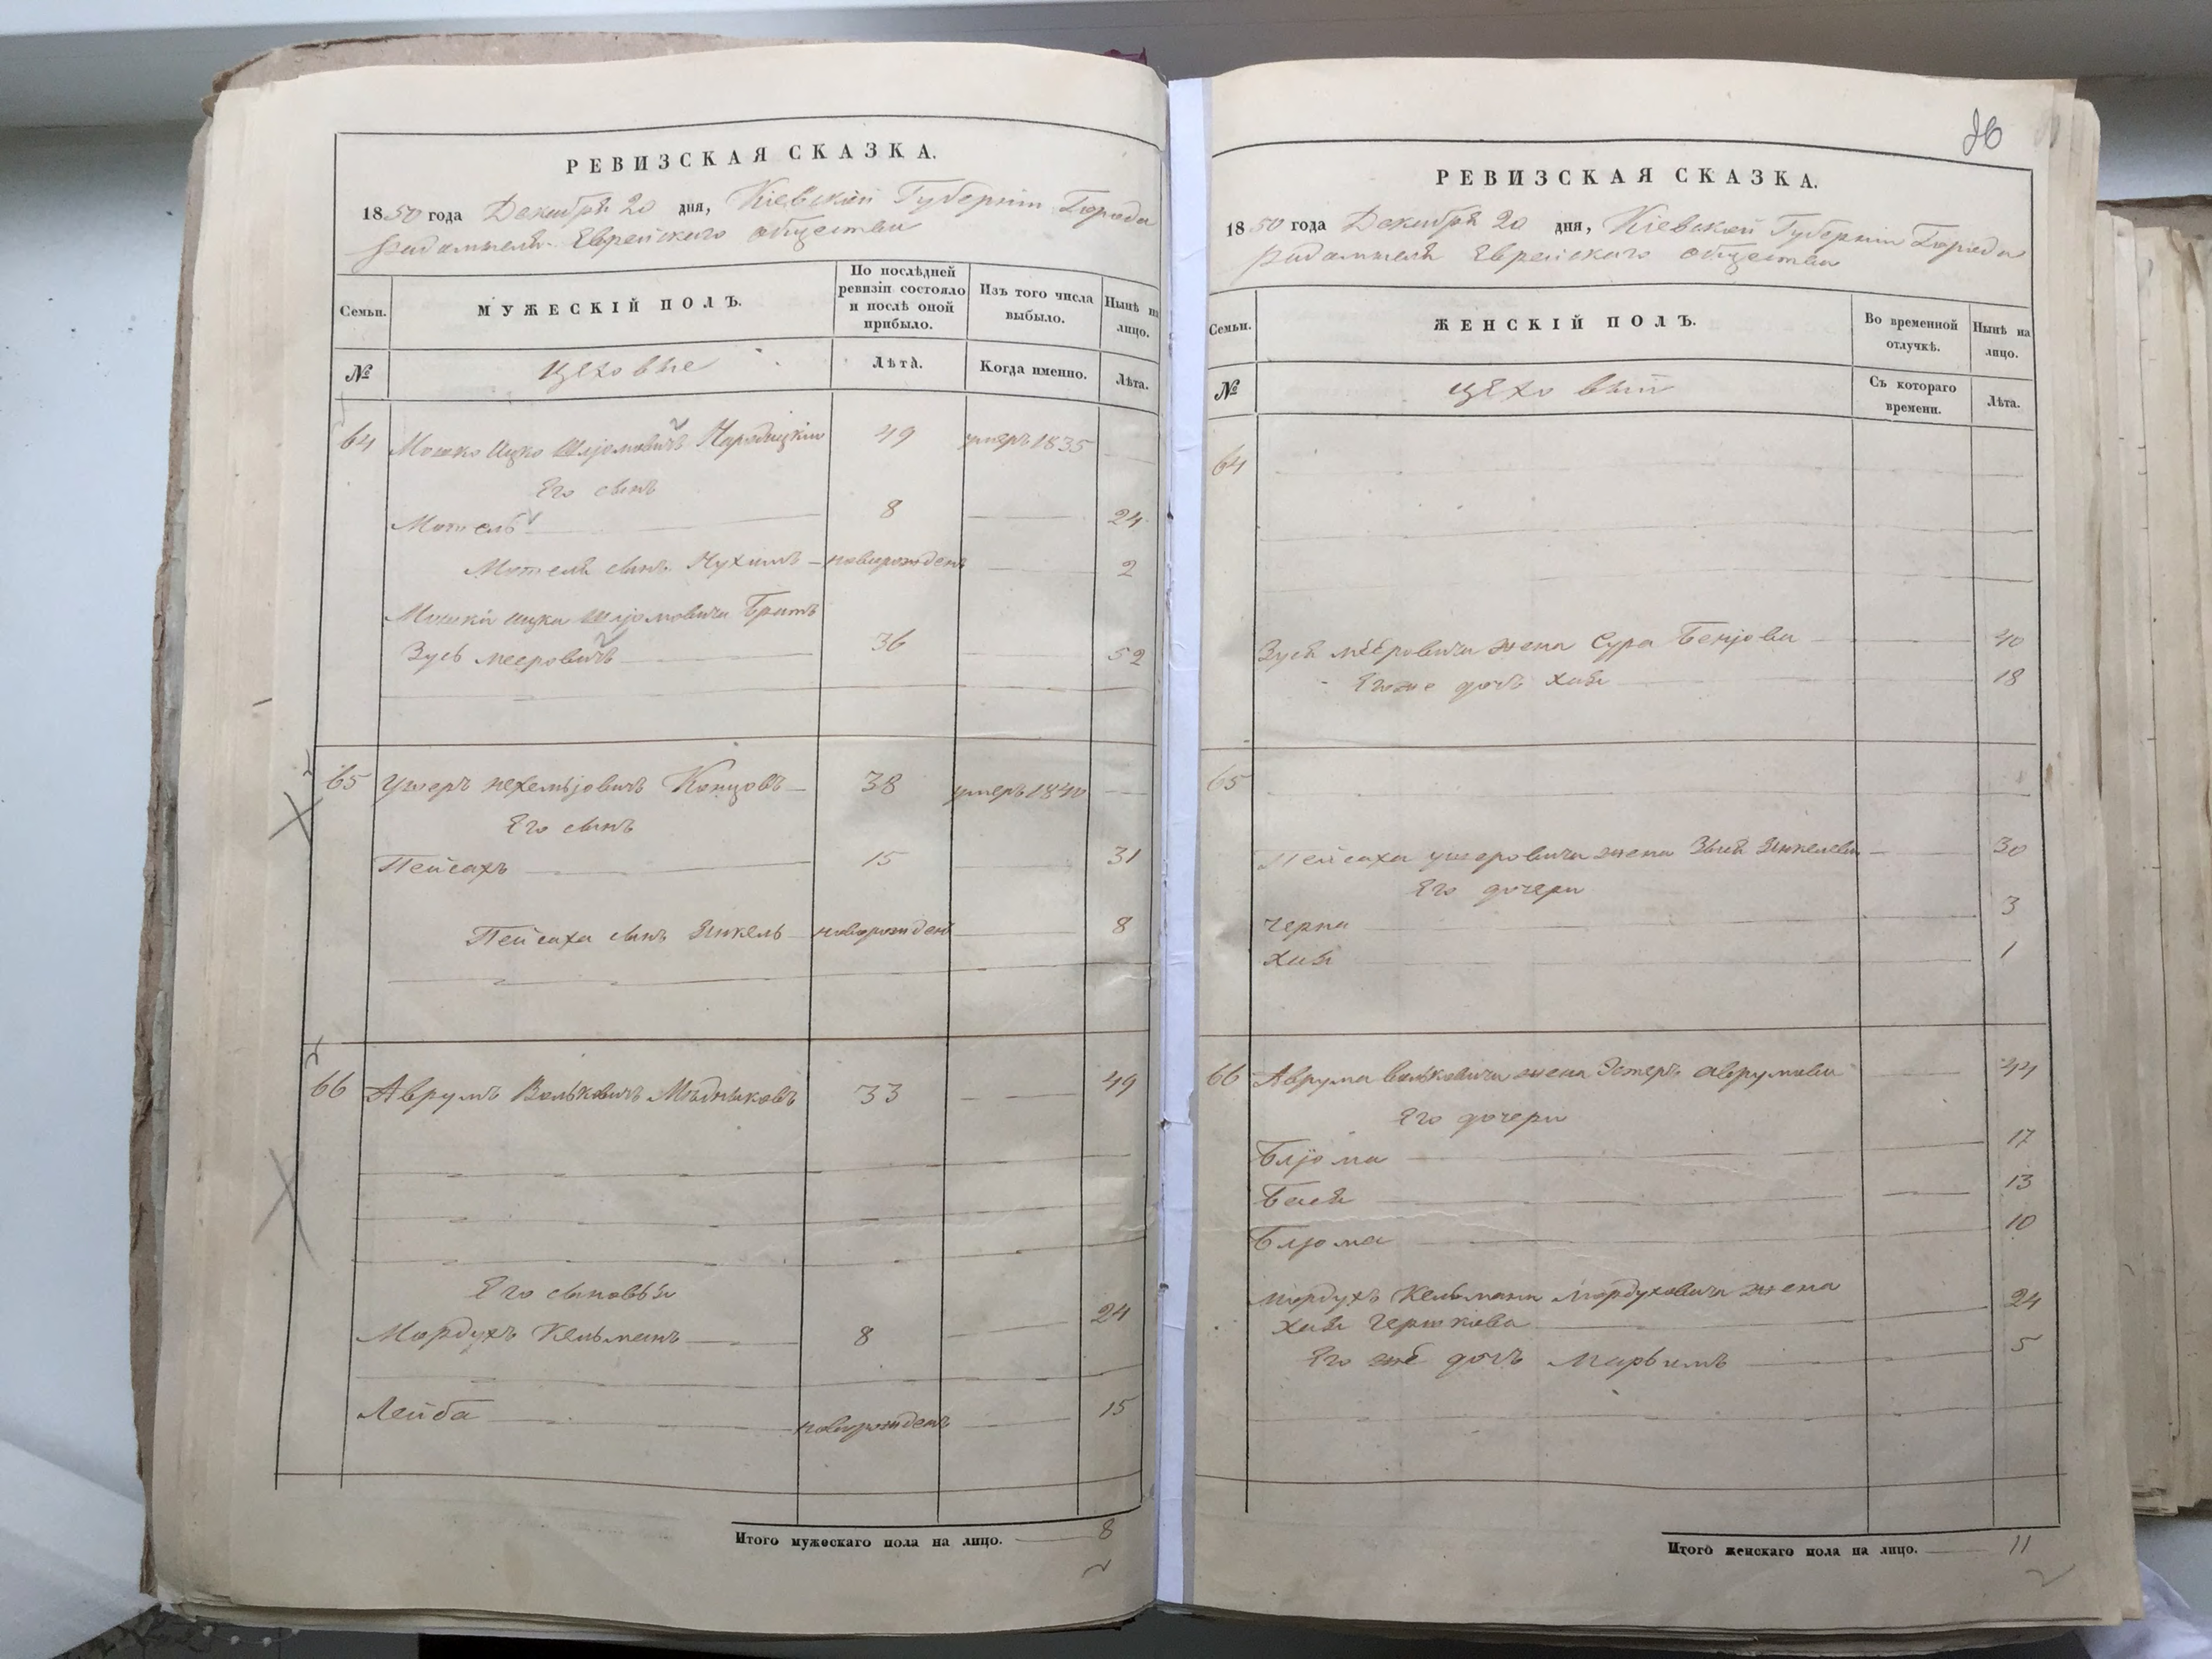 РЕВИЗСКАЯ СКАЗКА.
1850 года Декабря 20 дня, Кіевской Губерніи Города
Радомысля Еврейскаго общества
Семьи.
МУЖЕСКІЙ ПОЛЪ.
По послѣдней ревизіи состояло и послѣ оной прибыло.
Изъ того числа выбыло.
Нынѣ на лицо.
№
цеховые
Лѣта.
Когда именно.
Лѣта.
64 Мошко Ицко Шлiомовичъ Народицкій 49 умеръ 1835
Его сынъ
Мотель 8 24
Мотеля сынъ Нухимъ новорожденъ 2
Мошки Ицки Шлiомовича Братъ
Зусь мееровичъ 36 52
65 Ушеръ нехемьiовичъ Концовъ 38 умеръ 1840
Его сынъ
Пейсахъ 15 31
Пейсаха сынъ Янкель новорожденъ 8
66 Аврумъ Вольковичъ Мѣдниковъ 33 49
Его сыновья
Мордухъ Кельманъ 8 24
Лейба новорожденъ 15
Итого мужескаго пола на лицо. 8
36
РЕВИЗСКАЯ СКАЗКА.
1850 года Декабря 20 дня, Кіевской Губерніи Города
Радомысля Еврейскаго общества
Семьи.
ЖЕНСКІЙ ПОЛЪ.
Во временной отлучкѣ.
Нынѣ на лицо.
№
Съ котораго времени.
Лѣта.
64
Зуся мееровича жена Сура Бенiова 40
Его же дочь Хая 18
65
Пейсаха ушеровича жена Янкелева 30
Его дочери
Черна 3
Хая 1
66 Аврума вольковича жена Эстеръ аврумова 44
Его дочери
Блiома 17
Бася 13
Блiома 10
Мордухъ Кельмана Мордуховича жена
Хая Гершкова 24
Его же дочь Марьямъ 5
Итого женскаго пола на лицо. 11